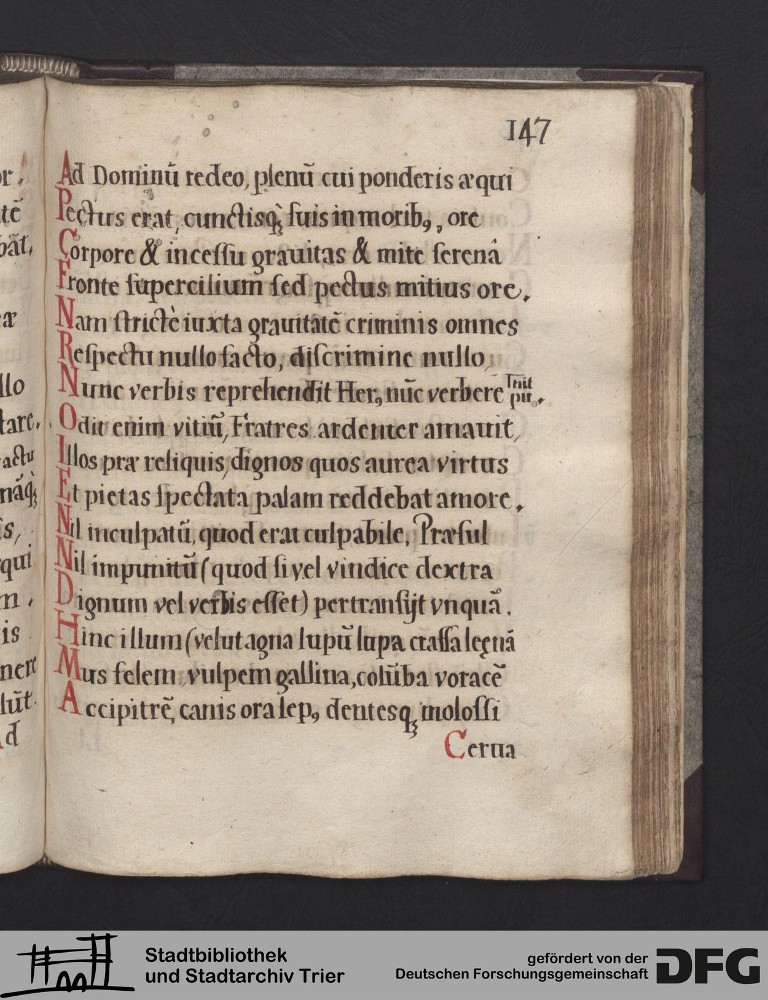 147
Ad Dominū redeo, plenū cui ponderis æqui
Pectus erat, cunctisq; suis in morib9, ore
Corpore & incessu grauitas & mite serenâ
Fronte supercilium sed pectus mitius ore.
Nam strictè iuxta grauitatē criminis omnes
Respectu nullo facto, discrimine nullo,
Nunc verbis reprehendit Her9 nūc verbere
Odit enim vitiū, Fratres ardenter amauit,
Illos præ reliquis, dignos quos aurea virtus
Et pietas spectata palam reddebat amore.
Nil inculpatū, quod erat culpabile, Præsul
Nil impunitū (quod si vel vindice dextra
Dignum vel verbis esset) pertransijt vnquā.
Hinc illum (velut agna lupū lupa crassa leęnā
Mus felem, vulpem gallina, colūba voracē
Accipitrē, canis ora lep9 dentesq; molossi
Cerua
or,
tē
bāt.
æ
llo
tare.
actu
nāq;
is,
qui
m.
is
nere
lūt.
Ad
Stadtbibliothek
und Stadtarchiv Trier
gefördert von der
Deutschen Forschungsgemeinschaft
DFG